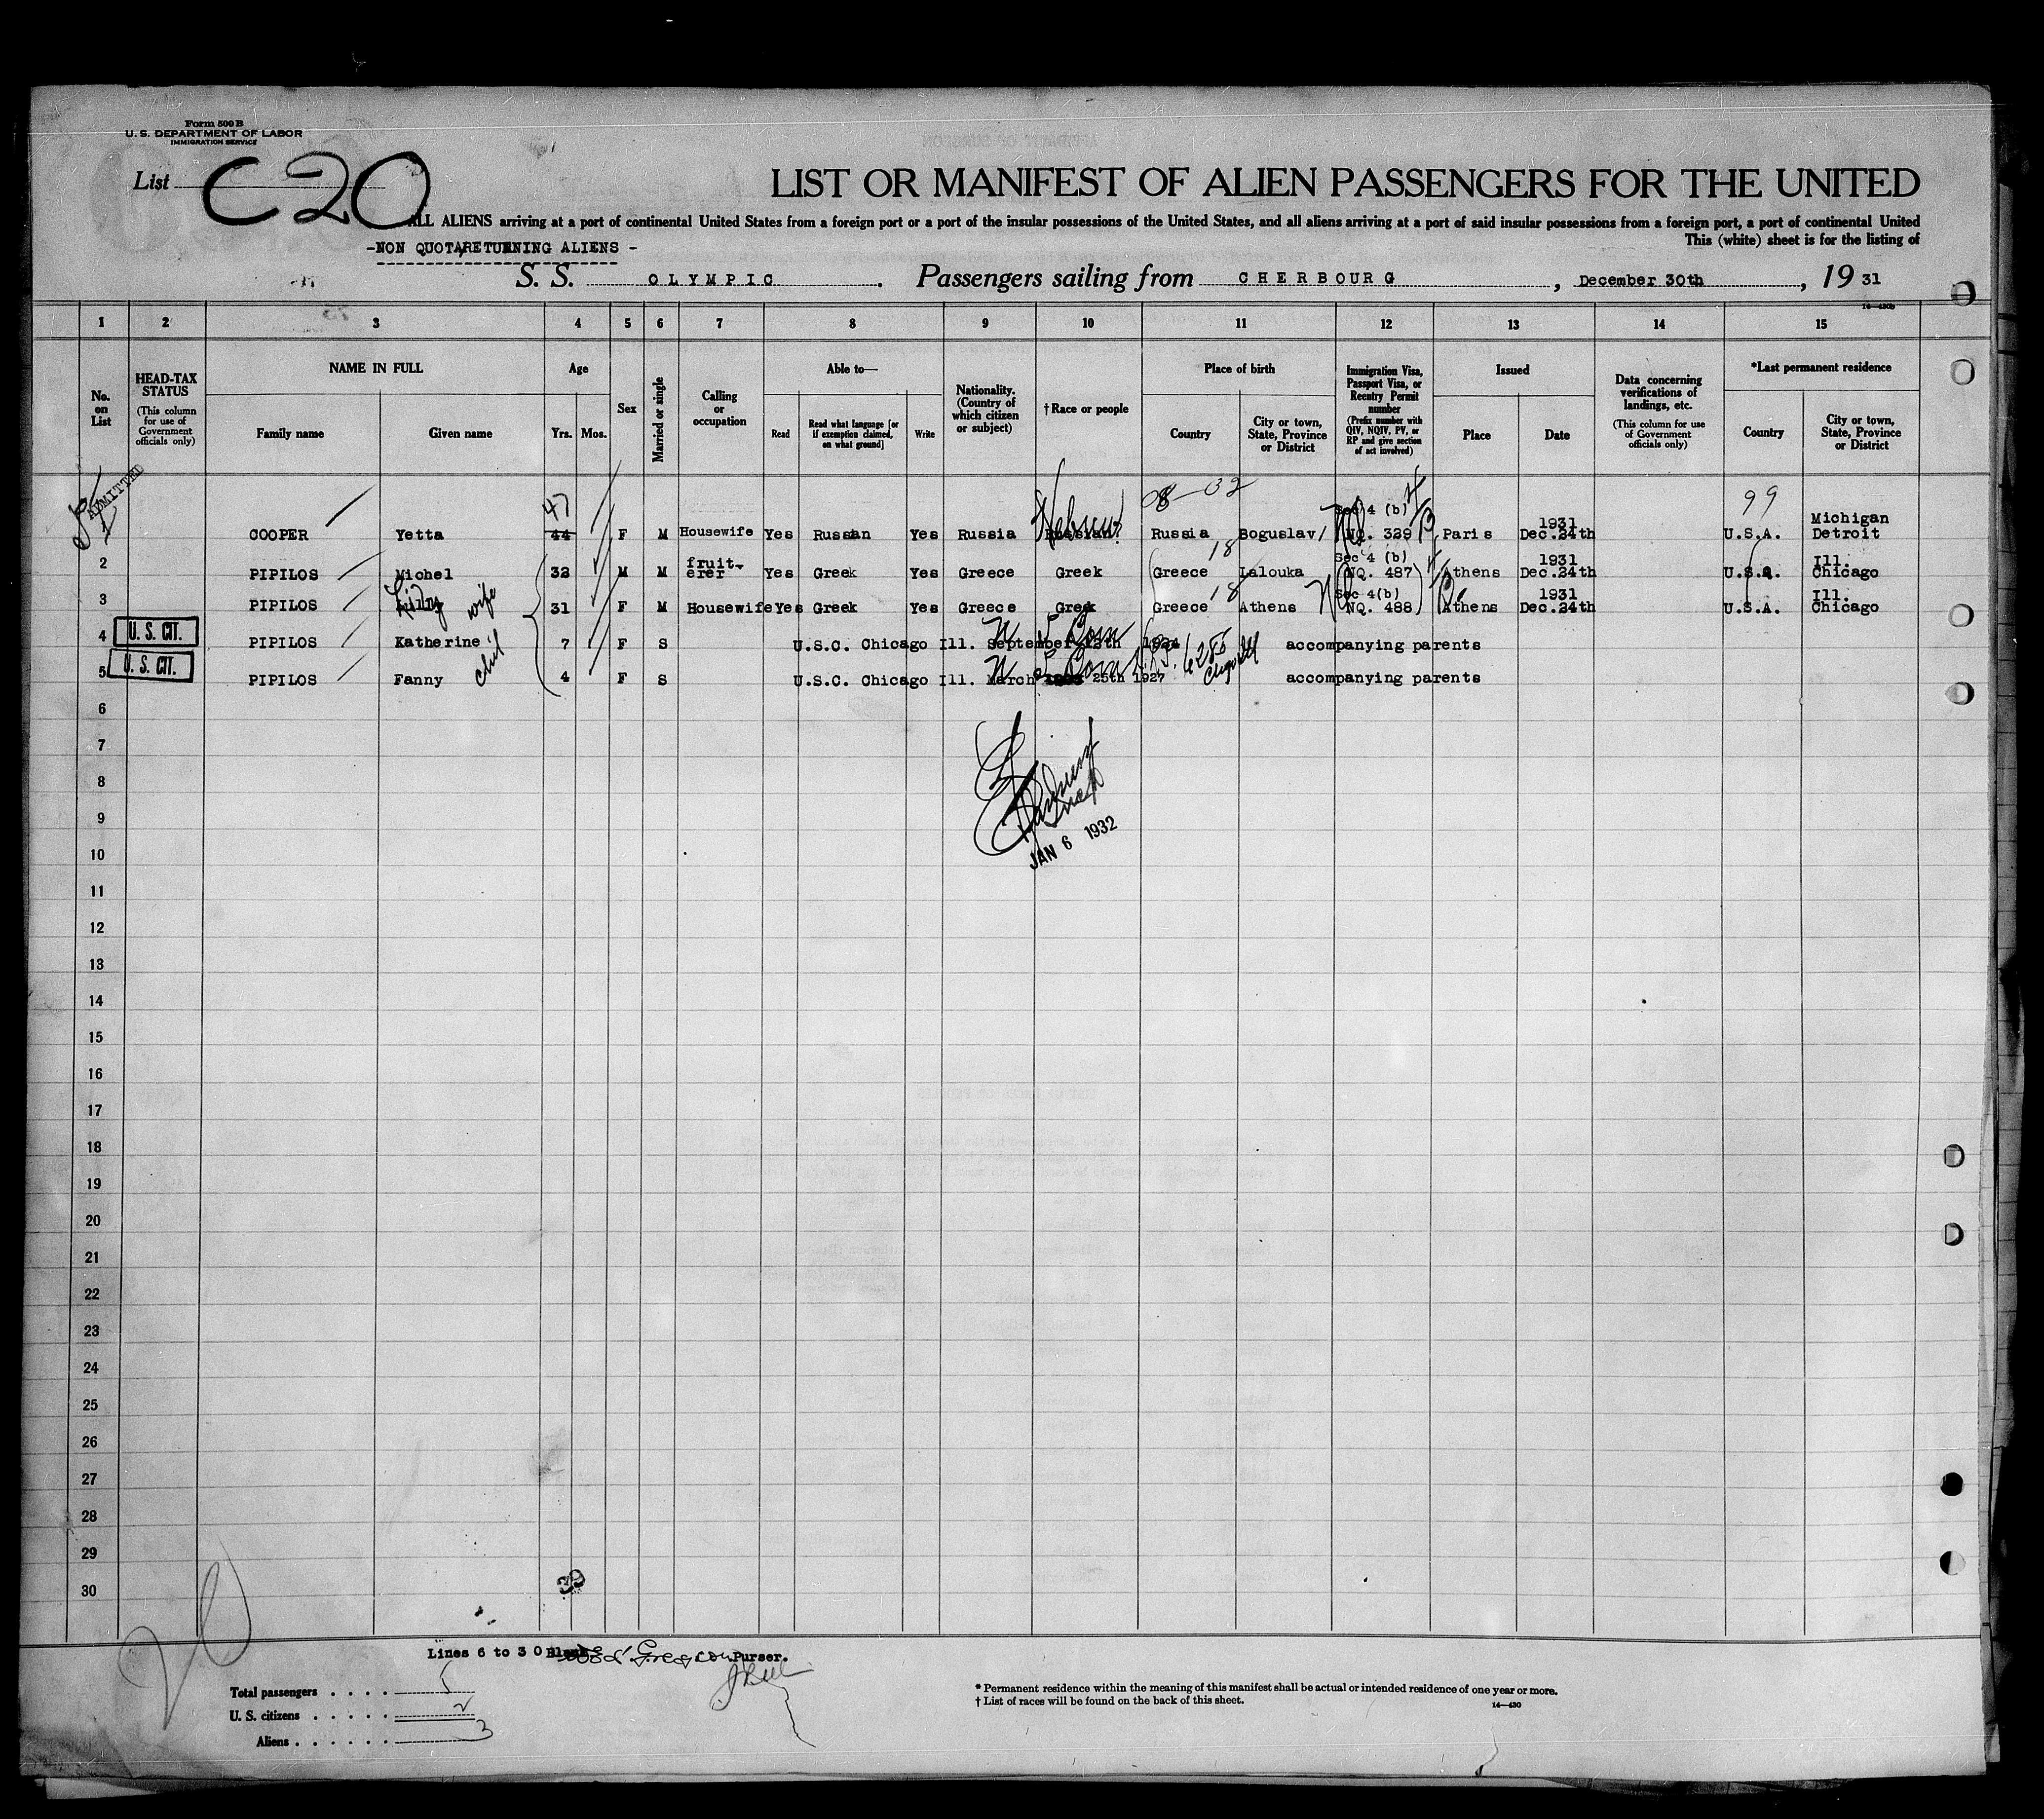 Form 500 B
U. S. DEPARTMENT OF LABOR
IMMIGRATION SERVICE
List C20
LIST OR MANIFEST OF ALIEN PASSENGERS FOR THE UNITED
ALL ALIENS arriving at a port of continental United States from a foreign port or a port of the insular possessions of the United States, and all aliens arriving at a port of said insular possessions from a foreign port, a port of continental United
-NON QUOTA/RETURNING ALIENS -
This (white) sheet is for the listing of
S. S. OLYMPIC. Passengers sailing from CHERBOURG, December 30th, 19 31
1 2 3 4 5 6 7 8 9 10 11 12 13 14 15
No. on List
HEAD-TAX STATUS (This column for use of Government officials only)
NAME IN FULL
Family name Given name
Age
Yrs. Mos.
Sex
Married or single
Calling or occupation
Able to—
Read Read what language [or if exemption claimed, on what ground] Write
Nationality. (Country of which citizen or subject)
† Race or people
Place of birth
Country City or town, State, Province or District
Immigration Visa, Passport Visa, or Reentry Permit number (Prefix number with QIV, NQIV, PV, or RP and give section of act involved)
Issued
Place Date
Data concerning verifications of landings, etc. (This column for use of Government officials only)
*Last permanent residence
Country City or town, State, Province or District
ADMITTED
47 Hebrew 08-02 Sec 4 (b) 1931 99 Michigan
COOPER Yetta 44 F M Housewife Yes Russian Yes Russia Russian Russia Boguslav NQ. 329 Paris Dec.24th U.S.A. Detroit
2 PIPILOS Michel 32 M M fruit-erer Yes Greek Yes Greece Greek Greece 18 Lalouka Sec 4 (b) NQ. 487 Athens 1931 Dec.24th U.S.A. Ill. Chicago
3 PIPILOS wife 31 F M Housewife Yes Greek Yes Greece Greek Greece 18 Athens Sec 4(b) NQ. 488 Athens 1931 Dec.24th U.S.A. Ill. Chicago
4 U. S. CIT. PIPILOS Katherine 7 F S U.S.C. Chicago Ill. September 1924 accompanying parents
5 U. S. CIT. PIPILOS Fanny 4 F S U.S.C. Chicago Ill. March 25th 1927 accompanying parents
6
7
8
9
JAN 6 1932
10
11
12
13
14
15
16
17
18
19
20
21
22
23
24
25
26
27
28
29
30
Lines 6 to 30 Blank Purser.
Total passengers . . . . 5
U. S. citizens . . . . . 2
Aliens . . . . . . 3
* Permanent residence within the meaning of this manifest shall be actual or intended residence of one year or more.
† List of races will be found on the back of this sheet.
14—430